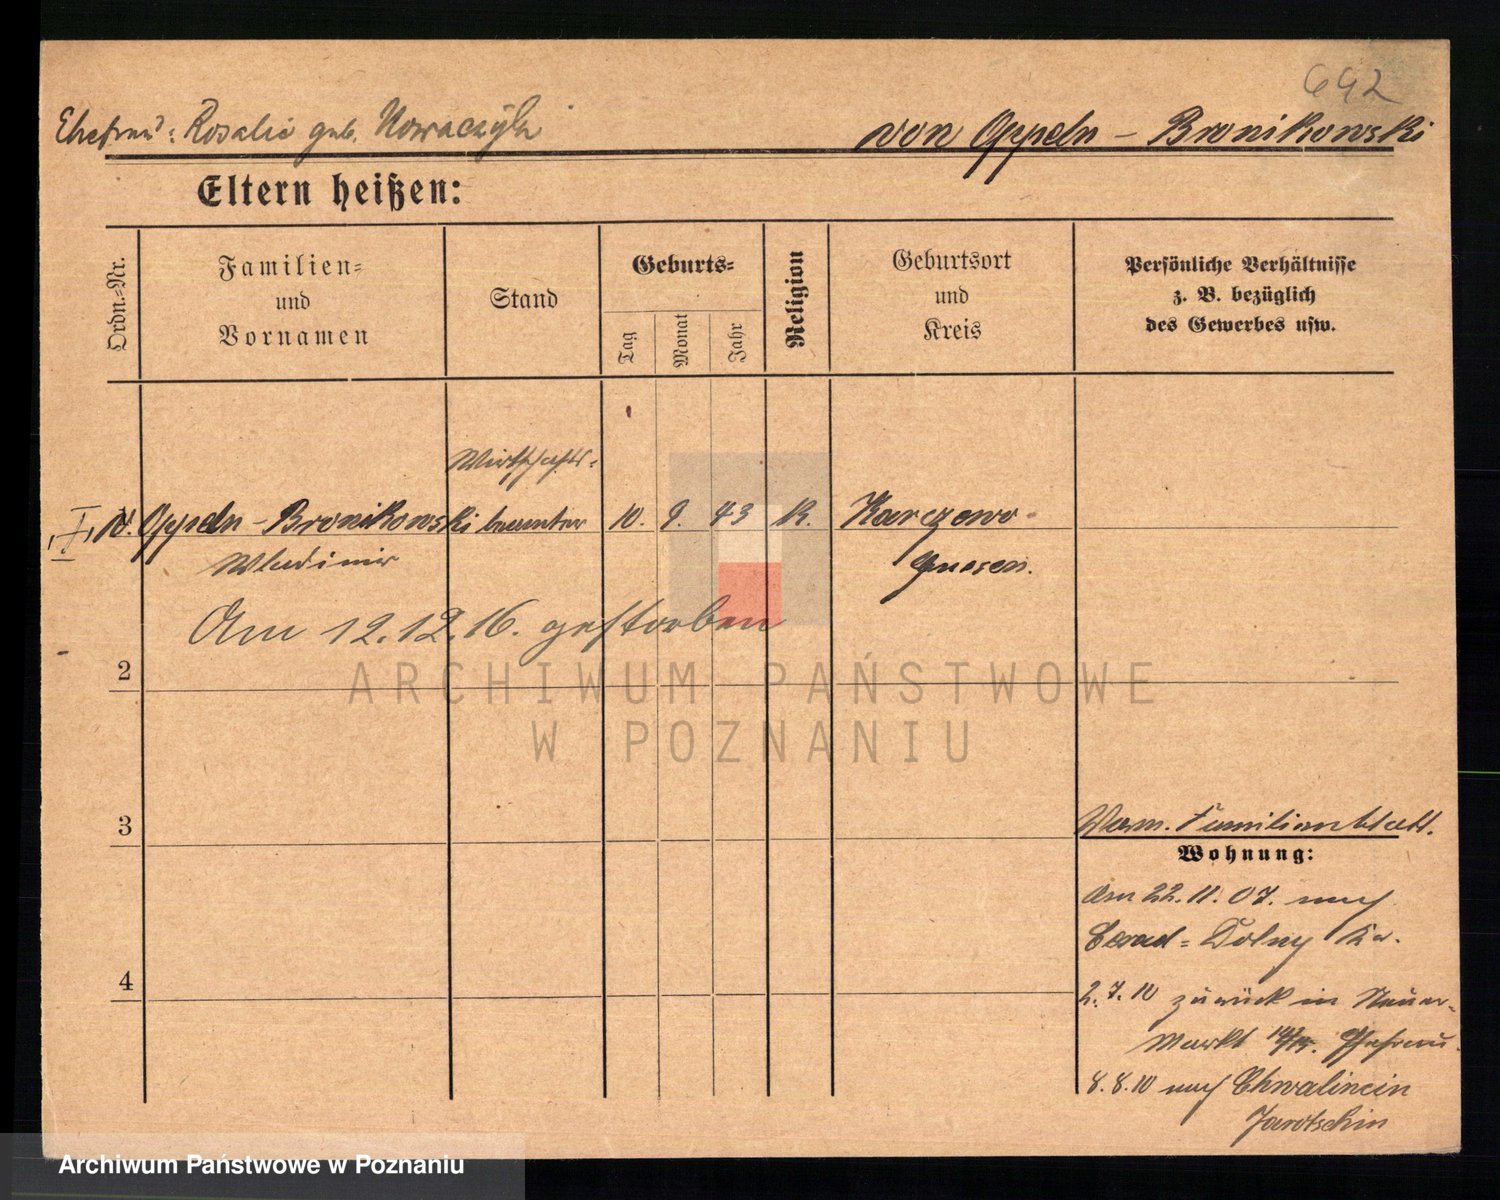 642
Ehefrau: Rosalie geb. Nowaczyk
von Oppeln - Bronikowski
Eltern heißen:
Ordn.-Nr.
Familien-
und
Vornamen
Stand
Geburts-
Tag
Monat
Jahr
Religion
Geburtsort
und
Kreis
Persönliche Verhältnisse
z. B. bezüglich
des Gewerbes usw.
Wirthschafts-
v. Oppeln - Bronikowski beamter 10. 9. 43 K. Karczewo
Wladimir
Gnesen.
Am 12.12.16. gestorben
2
ARCHIWUM PAŃSTWOWE
W POZNANIU
3
Familienblatt.
Wohnung:
4
Am 22.11.07. nach
Cerad- Dolny
2.7.10 zurück in Neuer-
Markt 14/15.
8.8.10 nach Chwalincin
Jarotschin
Archiwum Państwowe w Poznaniu